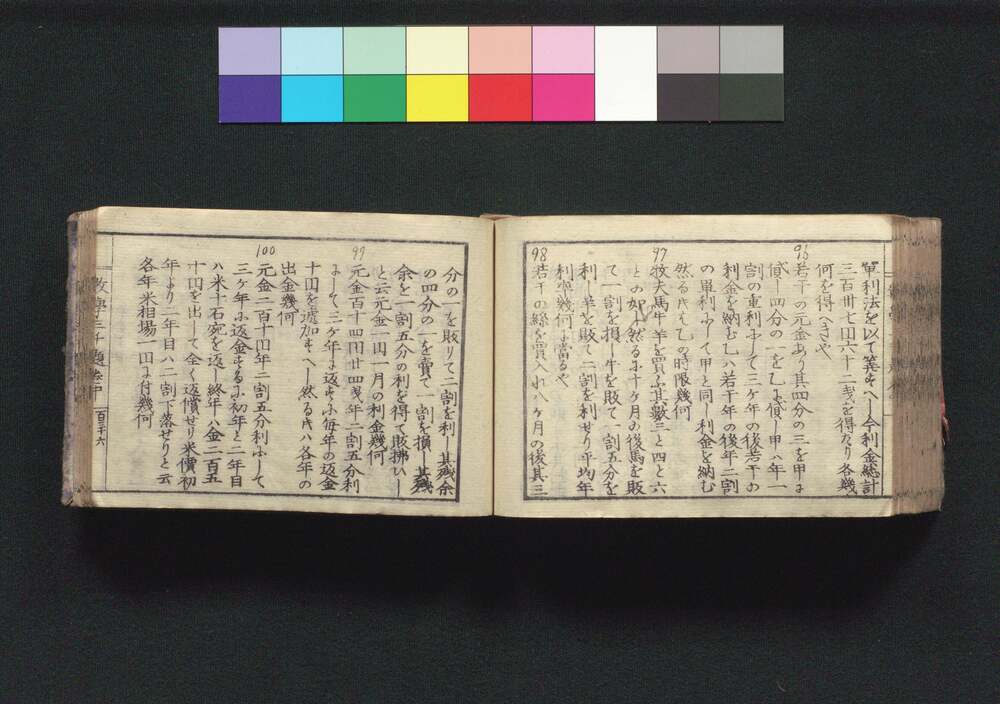 單利法を以て筭すへし今利金総計
三百卅七円六十二銭を得たり各幾
何を得へきや
96
若干の元金あり其四分の三を甲に
貸し四分の一を乙に貸し甲ハ年一
割の重利にして三ケ年の後若干の
利金を納む乙ハ若干年の後年二割
の單利にして甲と同し利金を納む
然る時ハ乙の時限幾何
97
牧夫馬牛羊を買ふ其數三と四と六
との如し然るに十ケ月の後馬を販
て一割を損し牛を販て一割五分を
利し羊を販て二割を利せり平均年
利率幾何に當るや
98
若干の絲を買入れ八ケ月の後其三
分の一を販りて二割を利し其残余
の四分の一を賣て一割を損し其残
余を一割五分の利を得て販拂ひし
と云元金一円一月の利金幾何
99
元金百十四円廿四銭年二割五分利
にして三ケ年に返金すに毎年の返金
十円を逓加すへし然る時ハ各年の
出金幾何
100
元金二百十円年二割五分利にして
三ケ年に返金するに初年と二年目
ハ米十石宛を返し終年ハ金二百五
十円を出して全く返償せり米價初
年より二年目ハ二割下落せりと云
各年米相場一円に付幾何
數學三千題卷中
百三十六